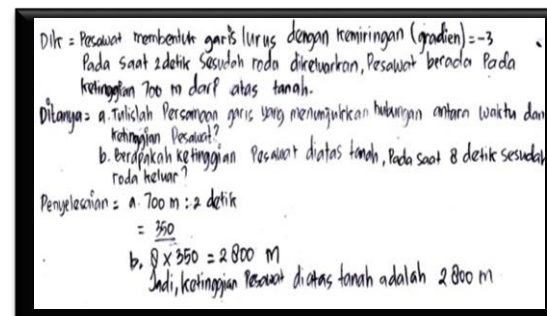 Dik = Pesawat membentuk garis lurus dengan kemiringan (gradien) = -3
Pada saat 2 detik sesudah roda dikeluarkan, Pesawat berada Pada
ketinggian 700 m dari atas tanah.
Ditanya = a. Tulislah Persamaan garis yang menunjukkan hubungan antara waktu dan
ketinggian Pesawat?
b. Berapakah ketinggian Pesawat diatas tanah, Pada saat 8 detik sesudah
roda keluar?
Penyelesaian = a. 700 m : 2 detik
= 350
b. 8 x 350 = 2800 M
Jadi, ketinggian Pesawat diatas tanah adalah 2800 m